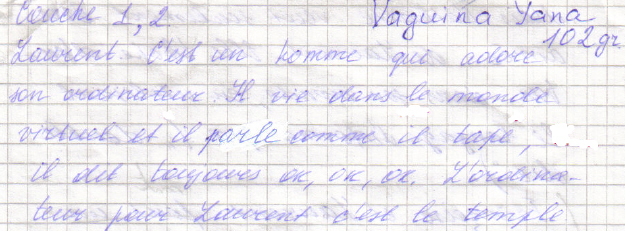 Couche 1, 2 Vaguina Yana
102 gr.
Laurent. C'est un homme qui adore
son ordinateur. Il vie dans le monde
virtuel et il parle comme il tape,
il dit toujours ok, ok, ok. L'ordina-
teur pour Laurent c'est le temple